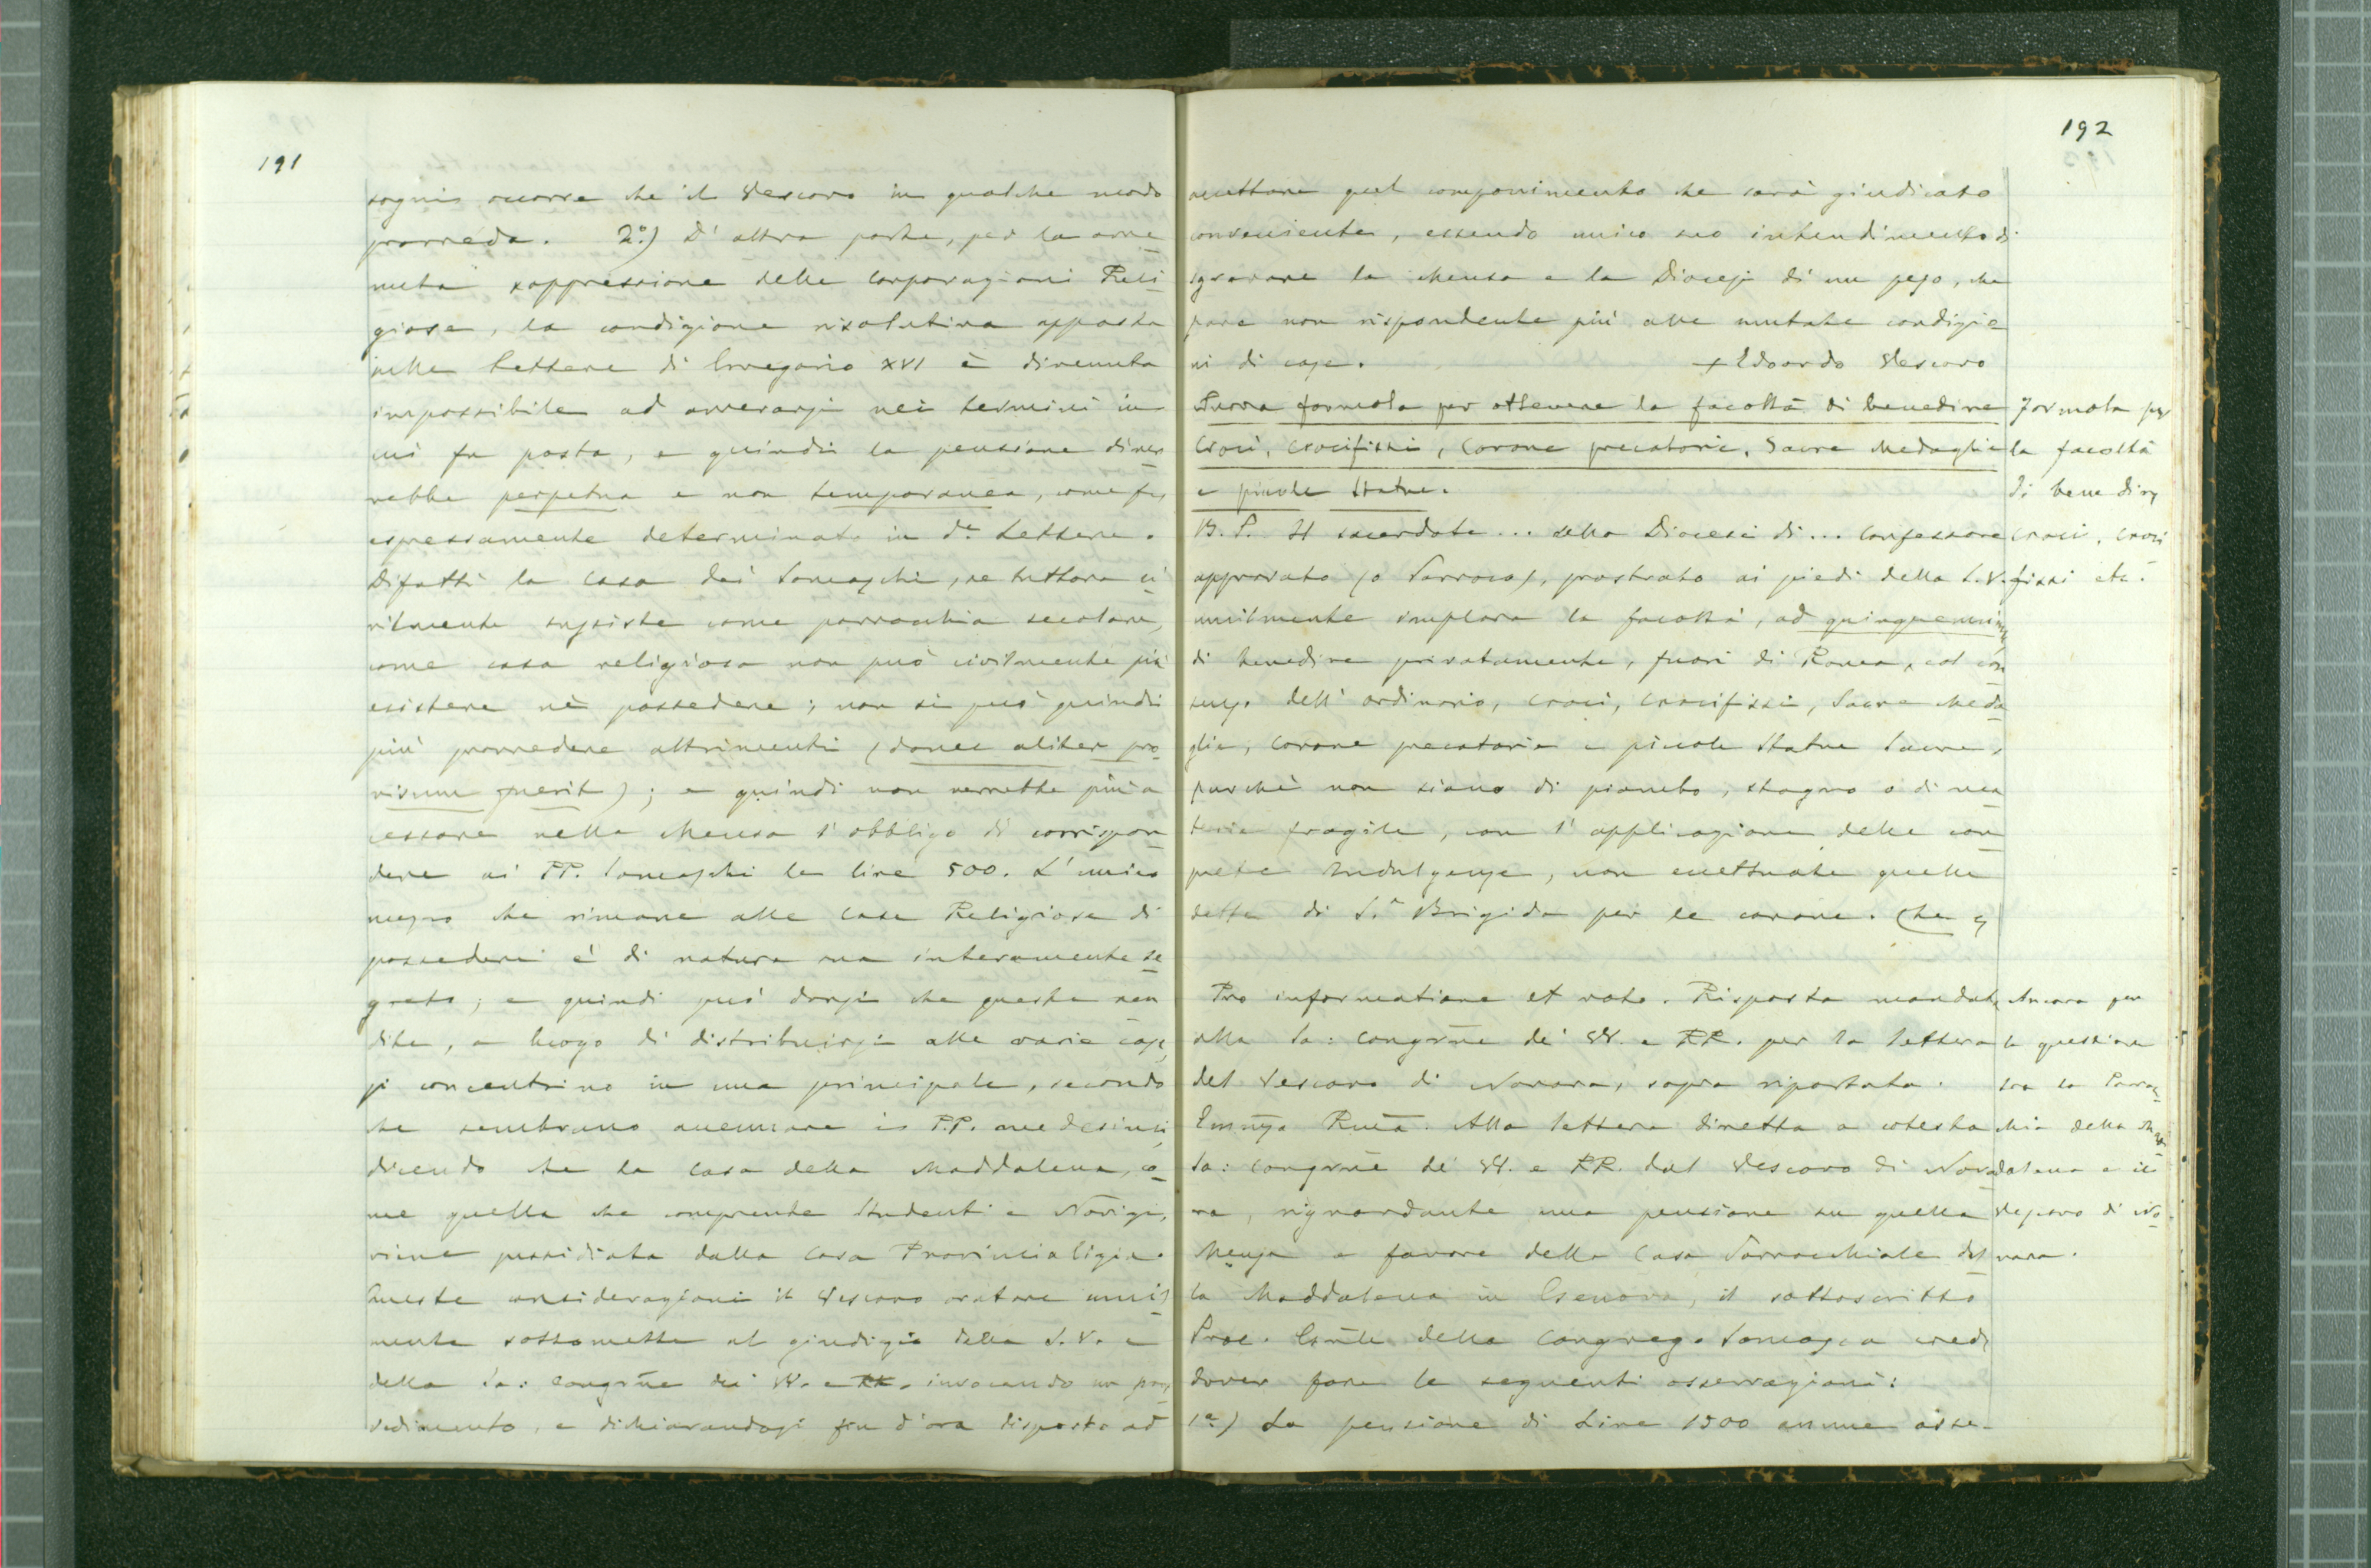 191
sogni, occorre che il Vescovo in qualche modo
provveda. 2.°) D'altra parte, per la avve
nuta soppressione delle Corporazioni Reli
giose, la condizione risolutiva apposta
nelle Lettere di Gregorio XVI è divenuta
impossibile ad avverarsi nei termini in
cui fu posta, e quindi la pensione diver
rebbe perpetua e non temporanea, come fu
espressamente determinato in d.e Lettere.
Difatti la Casa dei Somaschi, se tuttora ci
vilmente sussiste come parrocchia secolare,
come casa religiosa non può civilmente più
esistere nè possedere; non si può quindi
più provvedere altrimenti (donec aliter pro
visum fuerit); e quindi non verrebbe più a
cessare nella Mensa l'obbligo di corrispon
dere ai PP. Somaschi le lire 500. L'unico
mezzo che rimane alle Case Religiose di
possedere è di natura sua interamente se
greto; e quindi può darsi che queste ren
dite, a luogo di distribuirsi alle varie case,
si concentrino in una principale, secondo
che sembrano accennare i P.P. medesimi,
dicendo che la Casa della Maddalena, co
me quella che comprende Studenti e Novizi,
viene sussidiata dalla Casa Provincializia.
Queste considerazioni il Vescovo oratore umil
mente sottomette al giudizio della S.V. e
della Sa: Congrne dei VV. e RR. invocando un prov
vedimento, e dichiarandosi fin d'ora disposto ad
192
accettare quel componimento che sarà giudicato
conveniente, essendo unico suo intendimento di
sgravare la Mensa e la Diocesi di un peso, che
pare non rispondente più alle mutate condizio
ni di cose. + Edoardo Vescovo
formola per ottenere la facoltà di benedire
Croci, Crocifissi, Corone precatorie, Sacre Medaglie
e piccole Statue.
B. P. Il sacerdote ... della Diocesi di ... Confessore
approvato (o Parroco), prostrato ai piedi della S.V.
umilmente implora la facoltà, ad quinquennium
di benedire privatamente, fuori di Roma, col con
senso dell'ordinario, Croci, Crocifissi, Sacre Meda
glie, Corone precatorie e piccole Statue Sacre,
purchè non siano di piombo, stagno o di ma
teria fragile, con l'applicazione delle con
suete Indulgenze, non eccettuate quelle
dette di S.a Brigida per le corone. Che
Formola per
la facoltà
di benedire
croci, croci
fissi etc.
Pro informatione et voto. Risposta mandata
alla Sa: Congrne dei VV. e RR. per la lettera
del Vescovo di Novara, sopra riportata.
Emnza Rma. Alla lettera diretta a cotesta
Sa: Congrne de' VV. e RR. dal Vescovo di Nova
ra, riguardante una pensione su quella
Mensa a favore della Casa Parrocchiale del
la Maddalena in Genova, il sottoscritto
Proc. Gnle della Congreg. Somasca crede
dover fare le seguenti osservazioni:
1.a) La pensione di Lire 1500 annue asse-
Ancora per
la questione
tra la Parroc
chia della Mad
dalena e il
Vescovo di No
vara.